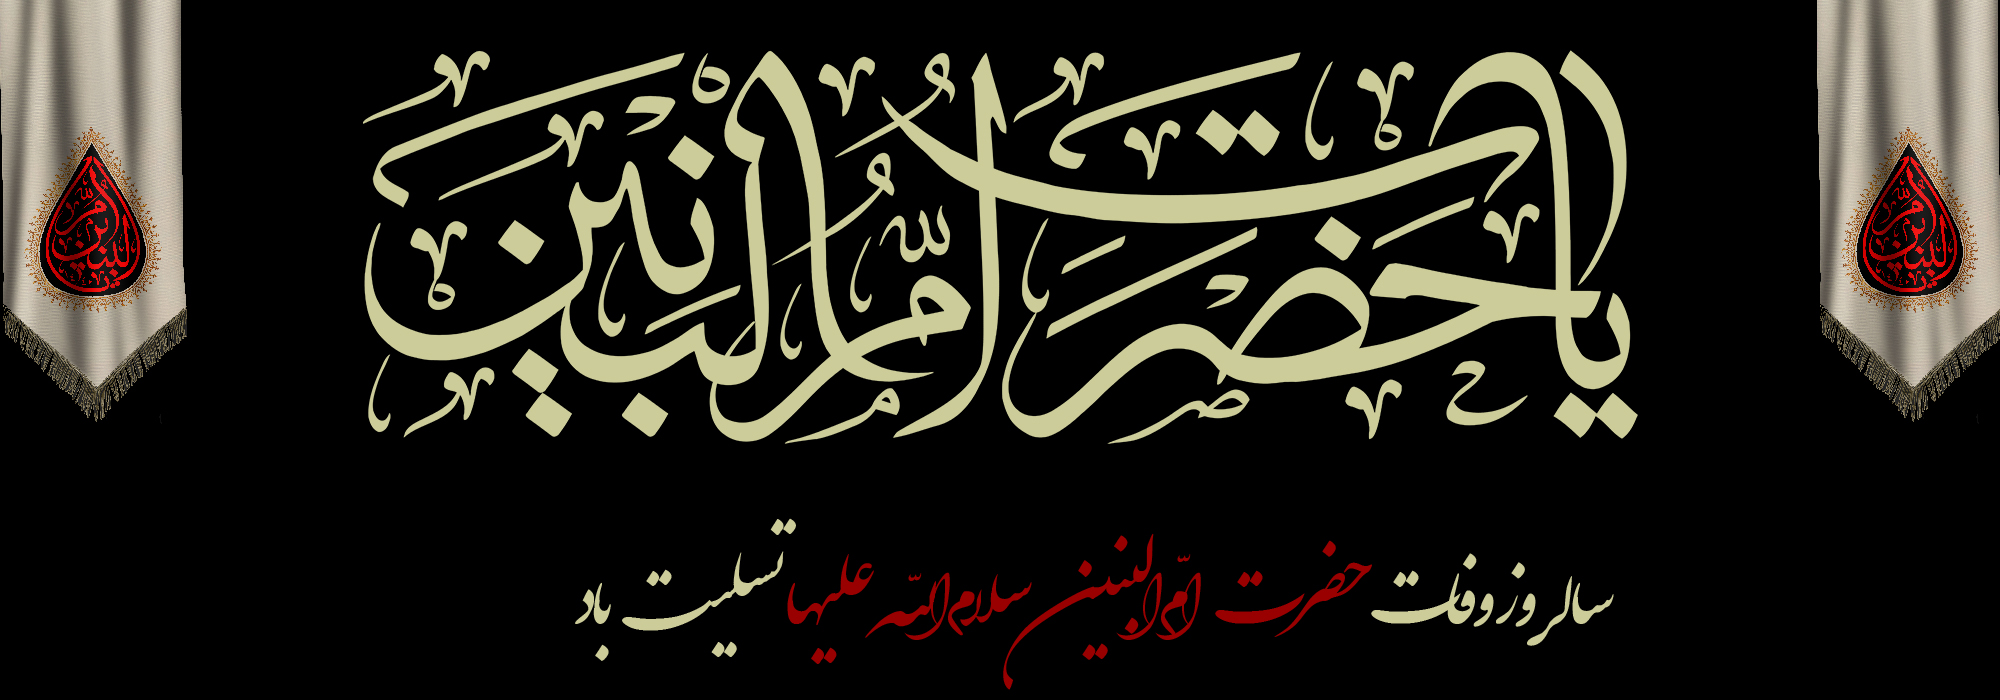 یا حضرت امّ البنین
سالروز وفات حضرت امّ البنین سلام الله علیها تسلیت باد
امّ البنین
امّ البنین